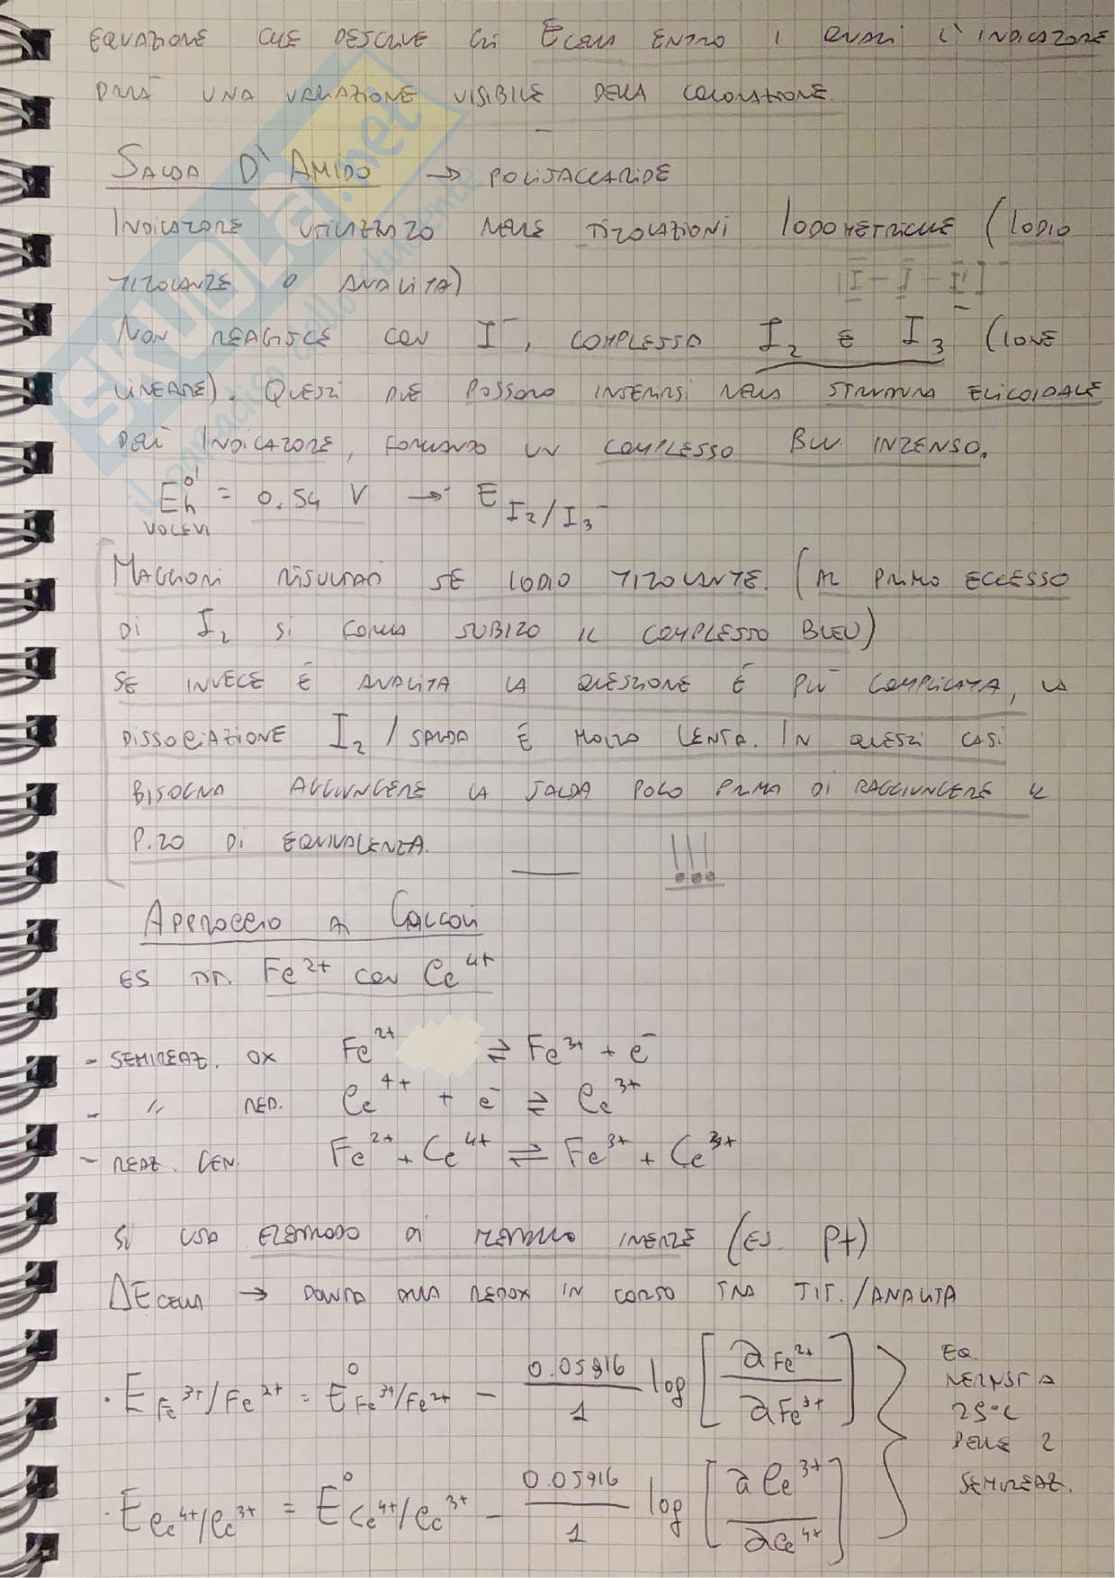 EQUAZIONE CHE DESCRIVE GLI Ecella ENTRO I QUALI L'INDICATORE
DARÀ UNA VARIAZIONE VISIBILE DELLA COLORAZIONE.
SALDA D'AMIDO → POLISACCARIDE
INDICATORE UTILIZZATO NELLE TITOLAZIONI IODOMETRICHE (IODIO
TITOLANTE O ANALITA)
[I-I-I]⁻
NON REAGISCE CON I⁻, COMPLESSA I₂ E I₃⁻ (IONE
LINEARE). QUESTI DUE POSSONO INSERIRSI NELLA STRUTTURA ELICOIDALE
DELL'INDICATORE, FORMANDO UN COMPLESSO BLU INTENSO.
E°'h = 0.54 V → E I₂/I₃⁻
MAGGIORI RISULTATI SE IODIO TITOLANTE. (AL PRIMO ECCESSO
DI I₂ SI FORMA SUBITO IL COMPLESSO BLEU)
SE INVECE È ANALITA LA QUESTIONE È PIÙ COMPLICATA, LA
DISSOCIAZIONE I₂/SALDA È MOLTO LENTA. IN QUESTI CASI
BISOGNA AGGIUNGERE LA SALDA POCO PRIMA DI RAGGIUNGERE IL
P.TO DI EQUIVALENZA. !!!
APPROCCIO AI CALCOLI
ES TIT. Fe²⁺ CON Ce⁴⁺
- SEMIREAZ. OX Fe²⁺ ⇌ Fe³⁺ + e⁻
- " RED. Ce⁴⁺ + e⁻ ⇌ Ce³⁺
- REAZ. GEN. Fe²⁺ + Ce⁴⁺ ⇌ Fe³⁺ + Ce³⁺
SI USA ELETTRODO DI METALLO INERTE (ES. Pt)
ΔEcella → DOVUTA ALLA REDOX IN CORSO TRA TIT./ANALITA
· E Fe³⁺/Fe²⁺ = E° Fe³⁺/Fe²⁺ - 0.05916/1 log [aFe²⁺/aFe³⁺]
· E Ce⁴⁺/Ce³⁺ = E° Ce⁴⁺/Ce³⁺ - 0.05916/1 log [aCe³⁺/aCe⁴⁺]
EQ.
NERNST A
25°C
PER LE 2
SEMIREAZ.
SKUOLA.net